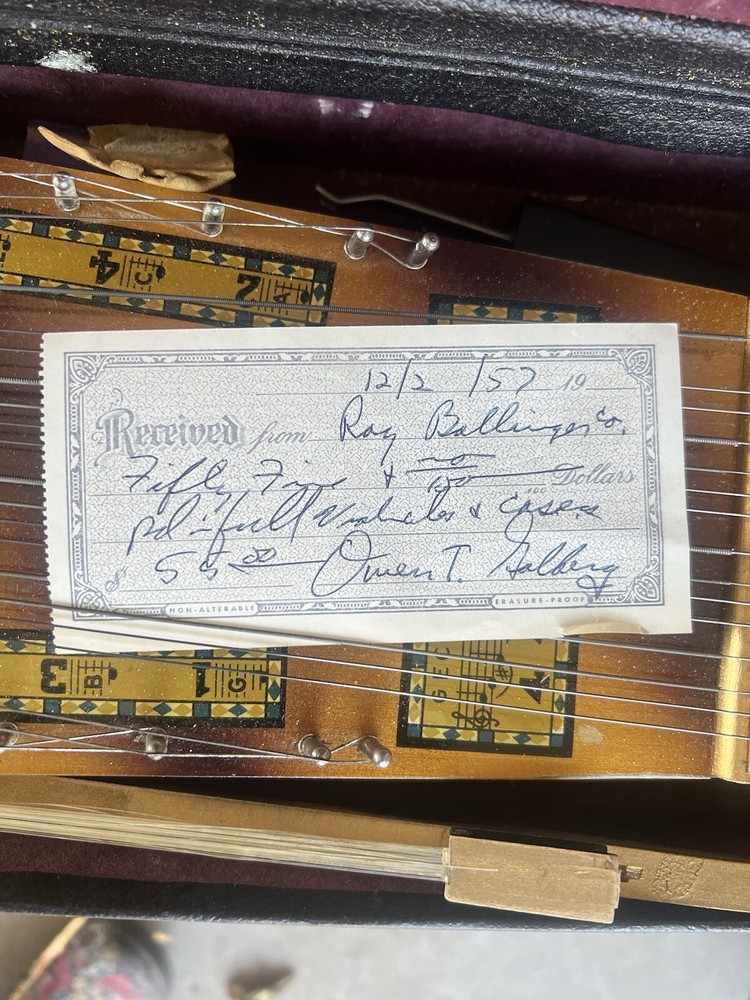 4 C 2 A
12/2 /57 19
Received from Ray Ballinger Co.
Fifty Five & no/100 Dollars
pd in full & Cases
$ 55 00 Owen T.
NON-ALTERABLE ERASURE-PROOF
3 B 1 G
G E C 4